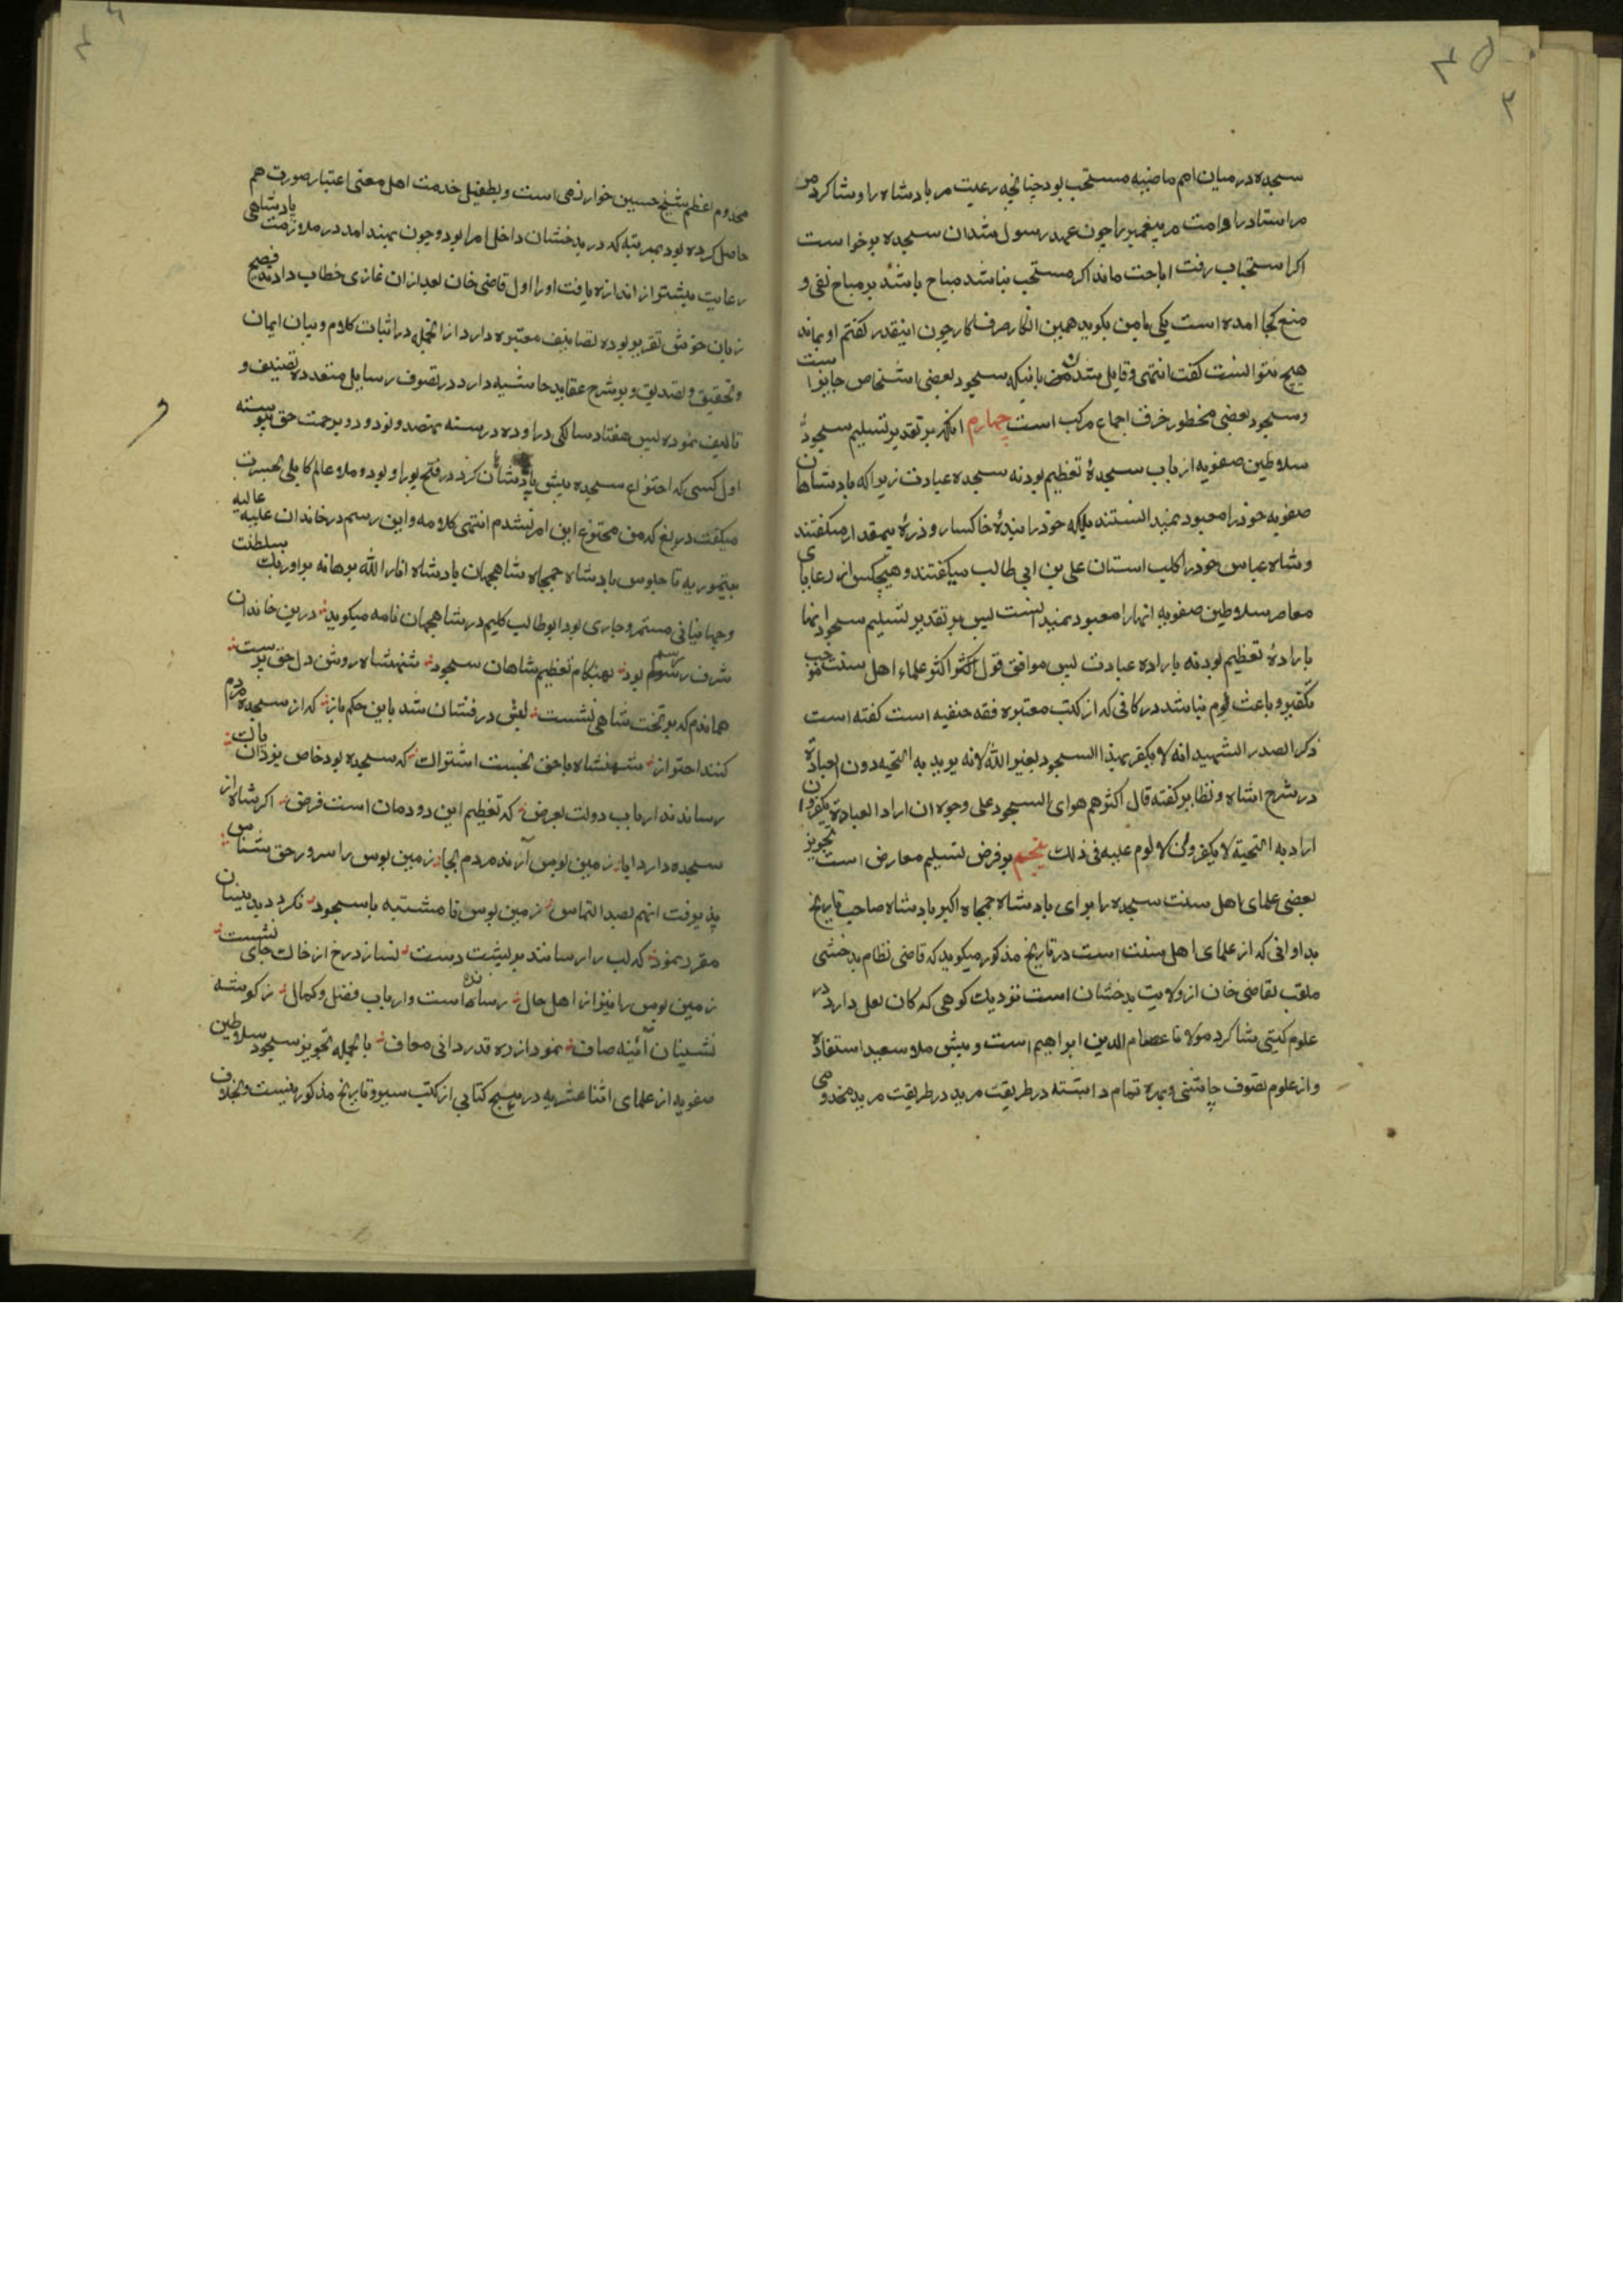 سجده در میان امم ماضیه مستحب بود چنانچه رعیت مر بادشاه را و شاکرد من
مر استاد را و امت مر پیغمبر را چون عهد رسول شد ان سجده برخواست
اکر استحباب رفت اباحت ماند اکر مستحب نباشد مباح باشد بر مباح نفی و
منع کجا امده است یکی با من بکوید همین انکار صرف کار چون اینقدر کفتم او بماند
هیچ نتوانست کفت انتهی و قایل شدن باینکه سجود بعضی اشخاص جایز است
و سجود بعضی محظور خرق اجماع مرکب است چهارم انکه بر تقدیر تسلیم سجود
سلاطین صفویه از باب سجدهٔ تعظیم بود نه سجده عبادت زیرا که بادشاهان
صفویه خود را معبود نمیدانستند بلکه خود را بندهٔ خاکسار و ذرهٔ بیمقدار میکفتند
و شاه عباس خود را کلب استان علی بن ابی طالب میکفتند و هیچکس از رعایای
معاصر سلاطین صفویه انها را معبود نمیدانست پس بر تقدیر تسلیم سجود انها
بارادهٔ تعظیم بود نه باراده عبادت پس موافق قول اکثر علماء اهل سنت موجب
تکفیر و باعث لوم نباشد در کافی که از کتب معتبره فقه حنفیه است کفته است
ذکر الصدر الشهید انه لا یکفر بهذا السجود لغیر الله لانه یرید به التحیه دون العبادة
در شرح اشباه و نظایر کفته قال اکثرهم هو ای السجود علی وجوه ان اراد العبادة یکفر و ان
اراد به التحیة لا یکفر و لا لوم علیه فی ذلک پنجم بر فرض تسلیم معارض است تجویز
بعضی علمای اهل سنت سجده را برای بادشاه جمجاه اکبر بادشاه صاحب تاریخ
بداوانی که از علمای اهل سنت است در تاریخ مذکور میکوید که قاضی نظام بدخشی
ملقب بقاضی خان از ولایت بدخشان است نزدیک کوهی که کان لعل دارد در
علوم کسبی شاکرد مولانا عصام الدین ابراهیم است و پیش ملا سعید استفاده
و از علوم تصوف چاشنی و بهره تمام داشته در طریقت مرید در طریقت مرید مخدومی
مخدوم اعظم شیخ حسین خوارزمی است و بطفیل خدمت اهل معنی اعتبار صورت هم
حاصل کرده بود بمرتبه که در بدخشان داخل امرا بود و چون بهند امد در ملازمت بادشاهی
رعایت بیشتر از اندازه یافت او را اول قاضی خان بعد ازان غازی خطاب دادند فصیح
زبان خوش تقریر بوده تصانیف معتبره دارد از انجمله در اثبات کلام و بیان ایمان
و تحقیق و تصدیق و بر شرح عقاید حاشیه دارد در تصوف رسایل متعدده تصنیف و
تالیف نموده بسن هفتاد سالکی در اوده در سنه نهصد و نود و دو برحمت حق پیوسته
اول کسی که اختراع سجده پیش بادشاهان کرد در فتح پور او بود و ملا عالم کابلی بحسرت
میکفت دریغ که من مخترع این امر نشدم انتهی کلامه و این رسم در خاندان علیه عالیه
تیموریه تا جلوس بادشاه جمجاه شاهجهان بادشاه انار الله برهانه بر اورنک سلطنت
و جهانبانی مستمر و جاری بود ابو طالب کلیم در شاهجهان نامه میکوید درین خاندان
شرف رسم بود بهنکام تعظیم شاهان سجود شهنشاه روشن دل حق پرست
هماندم که بر تخت شاهی نشست لبش در فشان شد باین حکم باز که از سجده مردم
کنند احتراز شهنشاه با حق نجست اشتراک که سجده بود خاص یزدان پاک
رساندند ارباب دولت بعرض که تعظیم این دودمان است فرض اکر شاه از
سجده دارد ابا زمین بوس آرند مردم بجا زمین بوس را سرور حق شناس
پذیرفت انهم بصد التماس زمین بوس تا مشتبه با سجود نکردد بدینسان
مقرر نمود که لب را رسانند بر پشت دست نسازد رخ از خاک جای نشست
زمین بوس را نیز از اهل حال رسانده است و ارباب فضل و کمال ز کوشه
نشینان آئینه صاف نمود از ره قدردانی معاف بالجمله تجویز سجود سلاطین
صفویه از علمای اثنا عشریه در هیچ کتابی از کتب سیر و تاریخ مذکور نیست و بخلاف